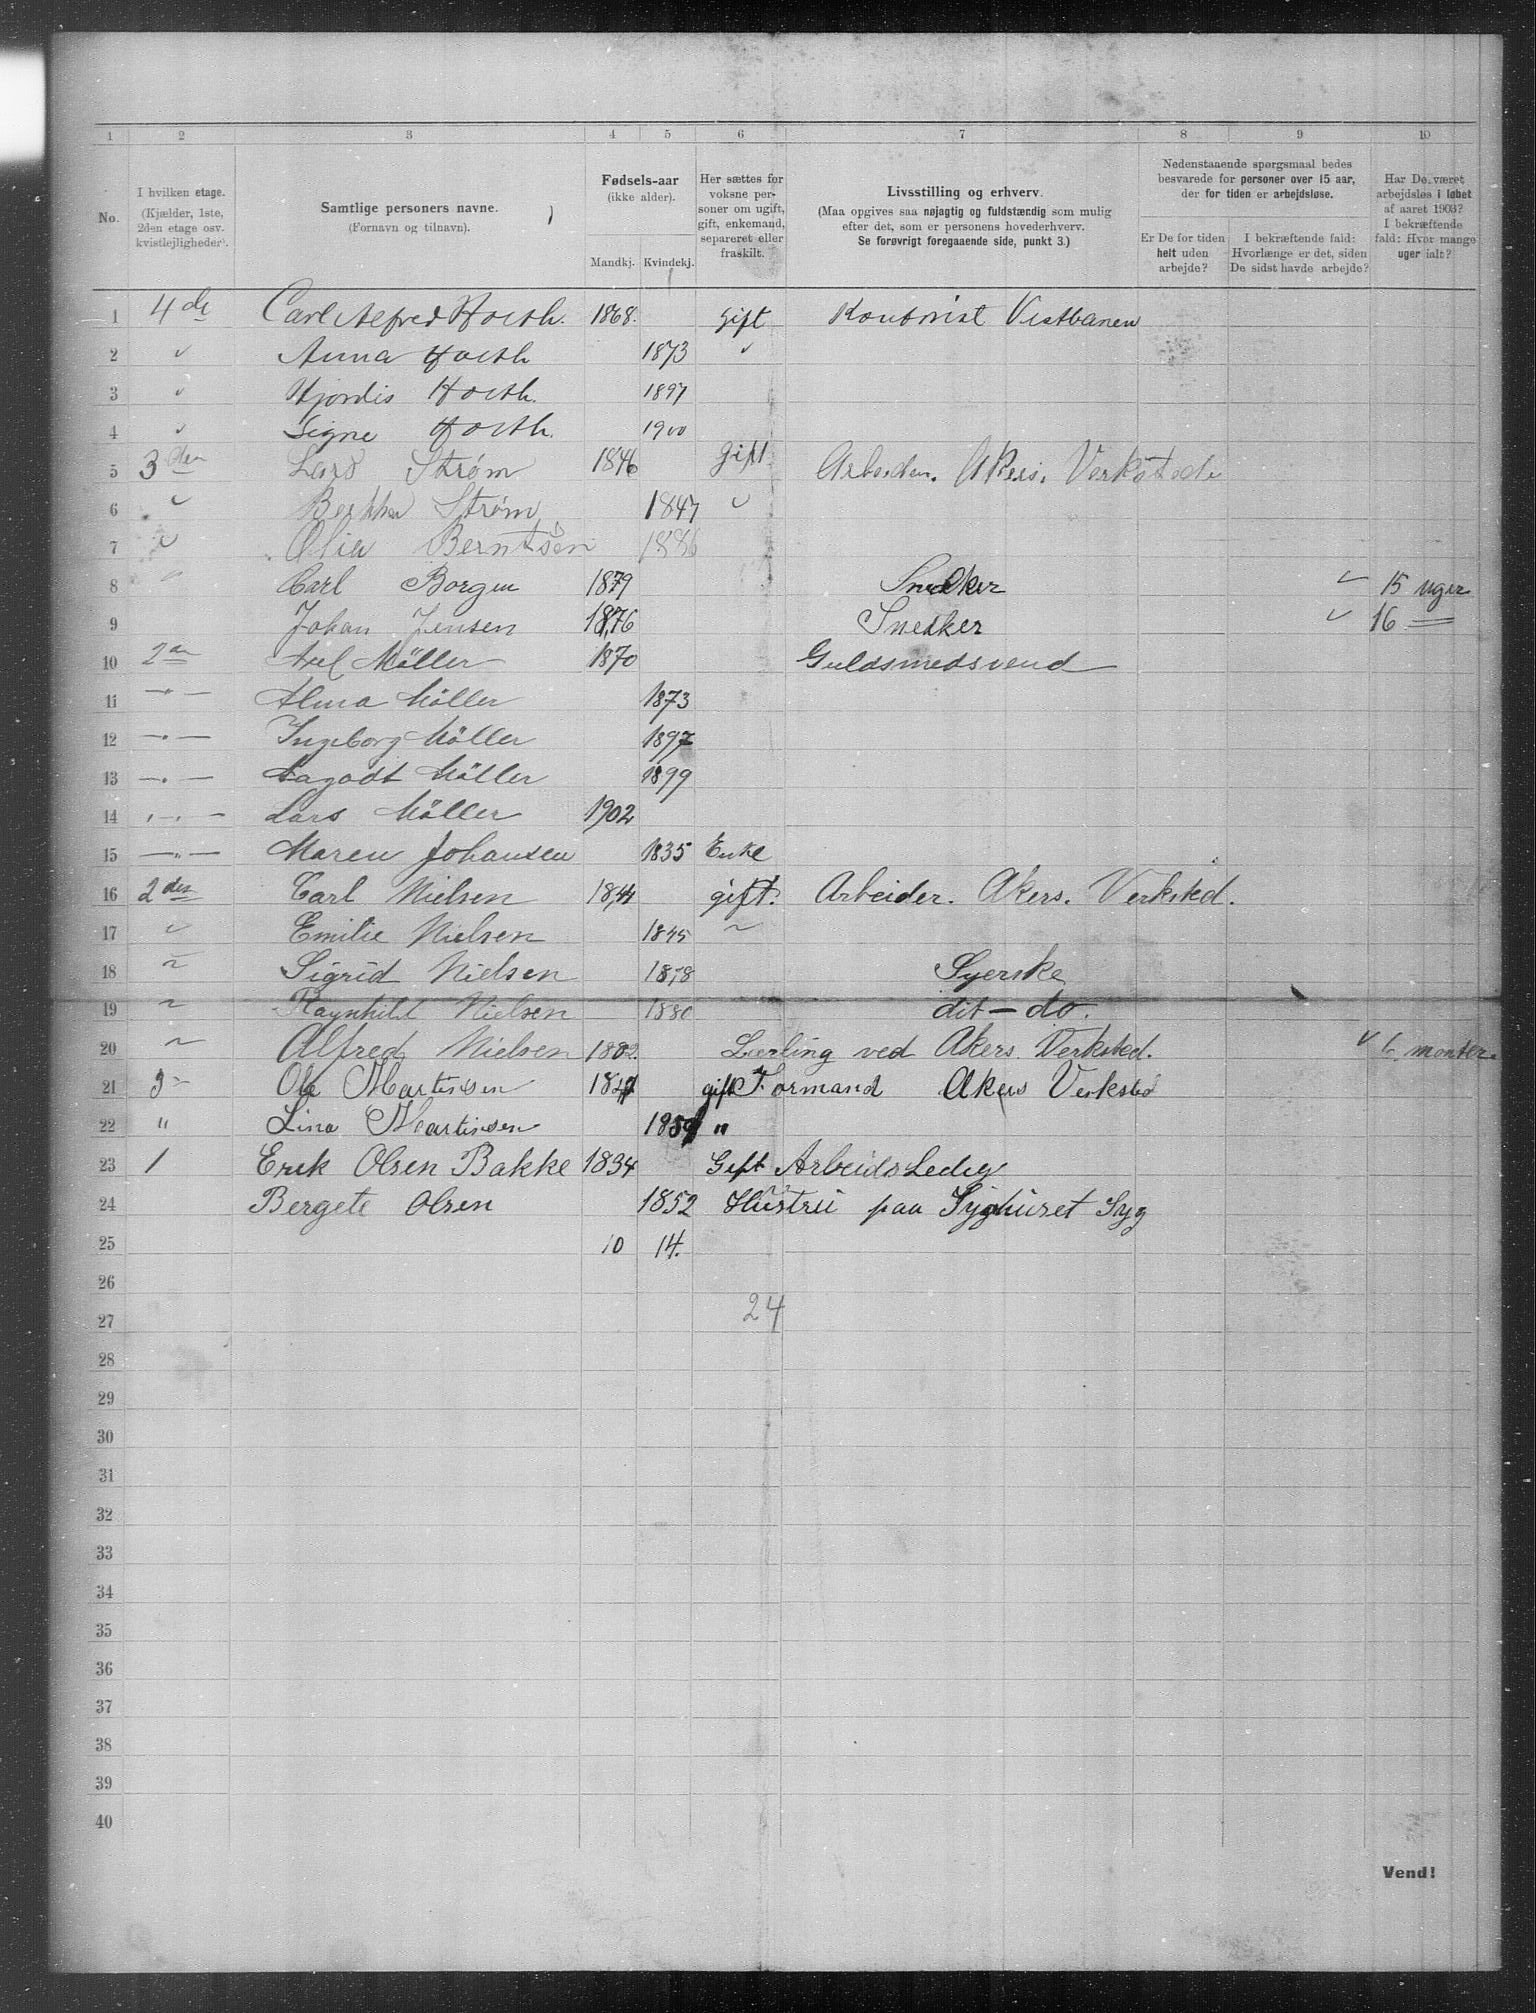 1 2 3 4 5 6 7 8 9 10
No.
I hvilken etage.
(Kjælder, 1ste,
2den etage osv.
kvistlejligheder).
Samtlige personers navne.
(Fornavn og tilnavn).
Fødsels-aar
(ikke alder).
Mandkj. Kvindekj.
Her sættes for
voksne per-
soner om ugift,
gift, enkemand,
separeret eller
fraskilt.
Livsstilling og erhverv.
(Maa opgives saa nøjagtig og fuldstændig som mulig
efter det, som er personens hovederhverv.
Se forøvrigt foregaaende side, punkt 3.)
Nedenstaaende spørgsmaal bedes
besvarede for personer over 15 aar,
der for tiden er arbejdsløse.
Er De for tiden
helt uden
arbejde?
I bekræftende fald:
Hvorlænge er det, siden
De sidst havde arbejde?
Har De været
arbejdsløs i løbet
af aaret 1903?
I bekræftende
fald: Hvor mange
uger ialt?
1 4de Carl Alfred Hoeth. 1868. gift Kontorist Vestbanen
2 " Anna Hoeth 1873 "
3 " Hjordis Hoeth. 1897
4 " Signe Hoeth. 1900
5 3den Lars Strøm 1846 gift Arbeider. Akers. Verksted
6 " Strøm 1847 "
7 " Berntsen 1886
8 " Carl Borgen 1879 Snedker 15 uger
9 Johan Jensen 1876 Snedker 16 —
10 Axel Möller 1870 Guldsmedsvend
11 —"— Alma Möller 1873
12 —"— Ingeborg Möller 1897
13 —"— Möller 1899
14 —"— Lars Möller 1902
15 —"— Maren Johansen 1835 Enke
16 2den Carl Nielsen gift. Arbeider. Akers. Verksted.
17 " Emilie Nielsen 1845 "
18 " Sigrid Nielsen 1878 Syerske
19 " Ragnhild Nielsen 1880 dit - do.
20 " Alfred Nielsen 1882. Lærling ved Akers. Verksted. 6 monter.
21 Ole Martinsen gift Formand Akers Verksted
22 " Lina Martinsen "
23 1 Erik Olsen Bakke 1834 Gift Arbeids Ledig
24 Bergete Olsen 1852 Hustru paa Syghuset Syg
25 10 14.
26
24
27
28
29
30
31
32
33
34
35
36
37
38
39
40
Vend!